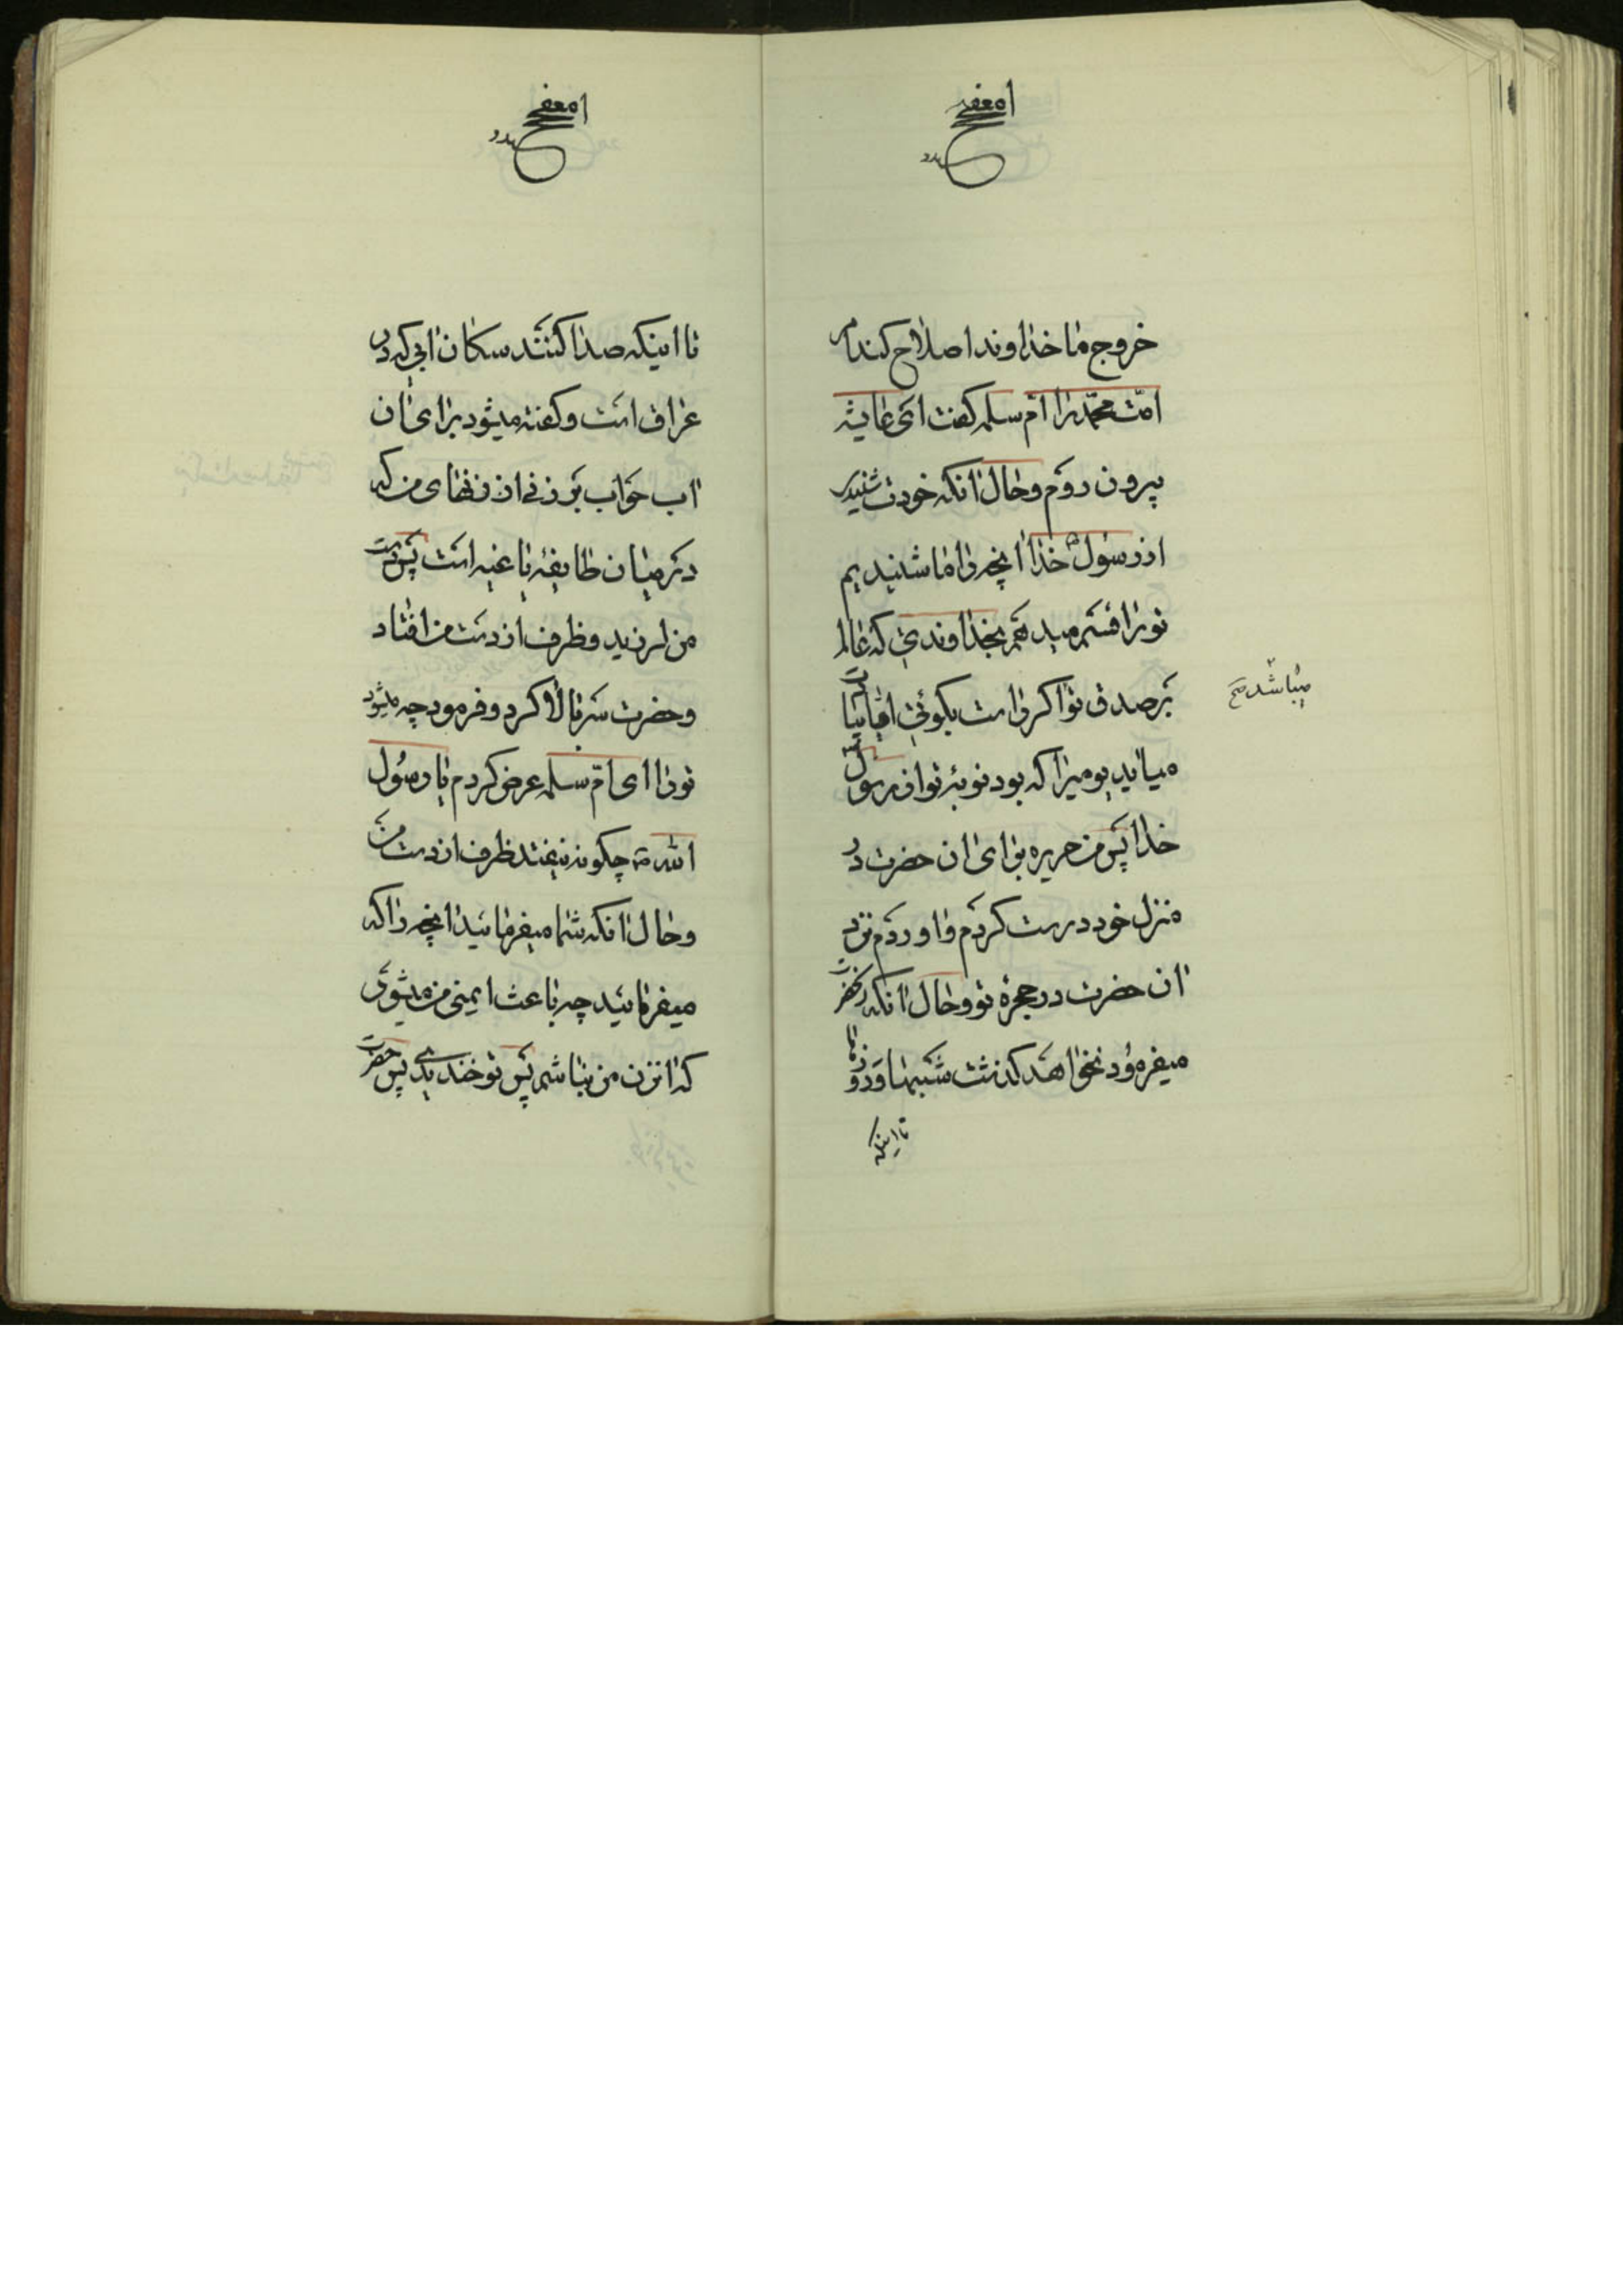 خروج ما خداوند اصلاح کند امر
امّت محمّد را امّ سلمه گفت ای عایشه
بیرون روم و حال آنکه خودت شنیدی
از رسول خدا آنچه را ما شنیدیم
تو را قسم میدهم بخداوندی که عالم
بر صدق تو اگر راست بگوئی آیا بیادت
میباشد صح
میآید یومیرا که بود نوبهٔ تو از رسول
خدا پس من حریره برای آن حضرت در
منزل خود درست کردم و آوردم نزد
آن حضرت در حجرهٔ تو و حال آنکه آنحضرت
میفرمود نخواهد گذشت شبها و روزها
تا اینکه
تا اینکه صدا کنند سکان آبی که در
عراق است و گفته میشود برای آن
آب حواب بر زنی از زنهای من که
در میان طایفهٔ باغیه است پس دست
من لرزید و ظرف از دست من افتاد
و حضرت سر بالا کرد و فرمود چه میشود
تو را ای امّ سلمه عرض کردم یا رسول
الله چگونه نیفتد ظرف از دست من
و حال آنکه شما میفرمائید آنچه را که
میفرمائید چه باعث ایمنی من میشود
که آنزن من نباشم پس تو خندیدی پس حضرت